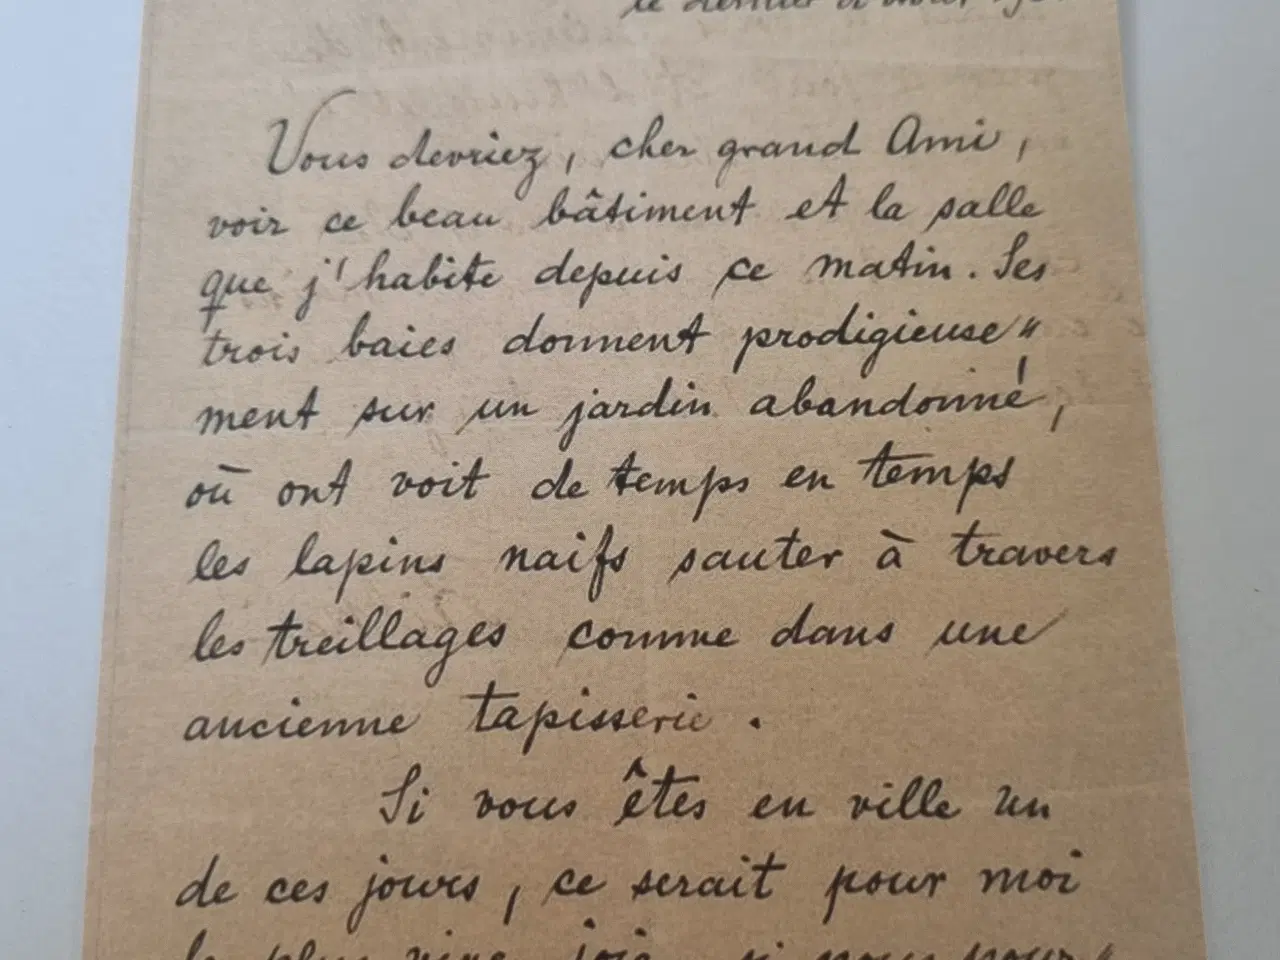 Vous devriez, cher grand Ami,
voir ce beau bâtiment et la salle
que j'habite depuis ce matin. Ses
trois baies donnent prodigieuse"
ment sur un jardin abandonné,
où ont voit de temps en temps
les lapins naifs sauter à travers
les treillages comme dans une
ancienne tapisserie.
Si vous êtes en ville un
de ces jours, ce serait pour moi
la plus vive joie si nous pour"